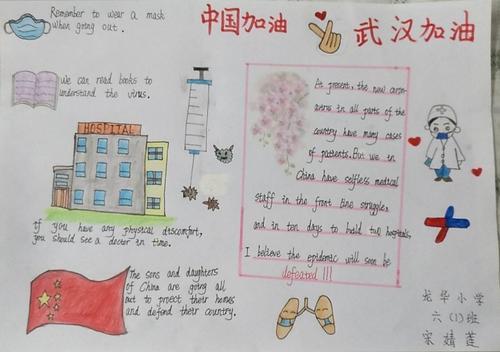 Remember to wear a mask
when going out.
中国加油
武汉加油
We can read books to
understand the virus.
HOSPITAL
if you have any physical discomfort,
you should see a doctor in time.
The sons and daughters
of China are going all
out to protect their homes
and defend their country.
At present, the new coron-
avirus in all parts of the
country have many cases
of patients. But we in
China have selfless medical
staff in the front line struggle,
and in ten days to build two hospitals,
I believe the epidemic will soon be
defeated !!!
龙华小学
六(1)班
宋婧莲